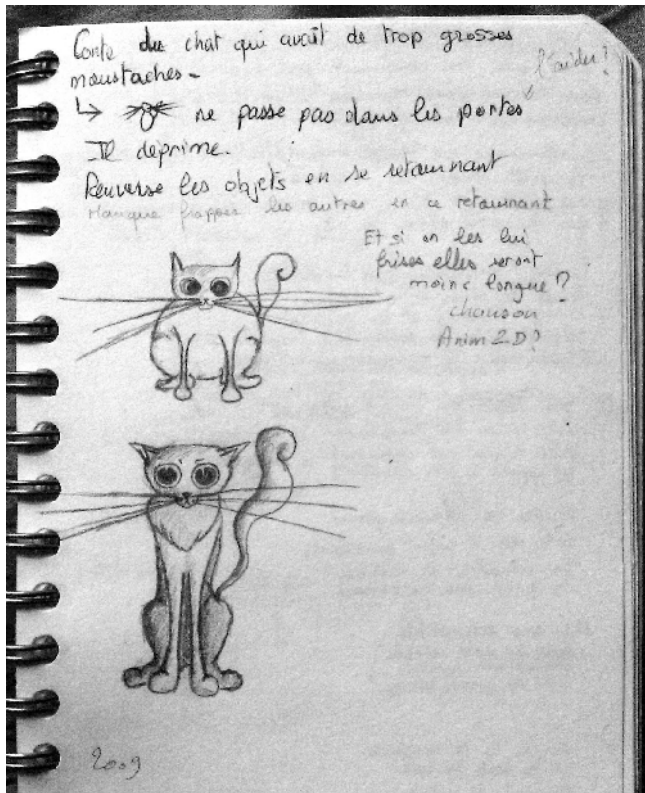 Conte du chat qui avait de trop grosses
moustaches -
l'aider?
↳ ne passe pas dans les portes
Il déprime.
Renverse les objets en se retournant
Manque frapper les autres en ce retournant
Et si on les lui
frises elles seront
moins longue ?
chanson
Anim 2D?
2009